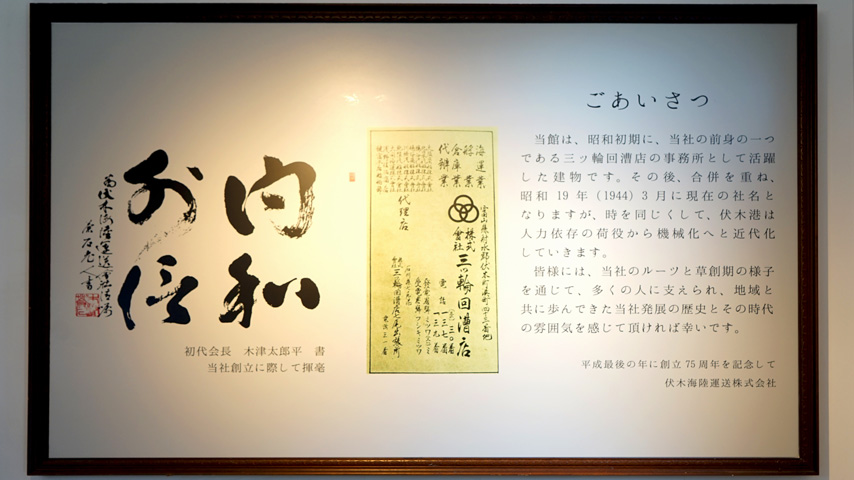 ごあいさつ
当館は、昭和初期に、当社の前身の一つ
である三ツ輪回漕店の事務所として活躍
した建物です。その後、合併を重ね、
昭和 19 年 (1944) 3 月に現在の社名と
なりますが、時を同じくして、伏木港は
人力依存の荷役から機械化へと近代化
していきます。
皆様には、当社のルーツと草創期の様子
を通じて、多くの人に支えられ、地域と
共に歩んできた当社発展の歴史とその時代
の雰囲気を感じて頂ければ幸いです。
平成最後の年に創立 75 周年を記念して
伏木海陸運送株式会社
海運業
倉庫業
代辨業
代理店
富山縣射水郡伏木町湊町四三番地
株式
會社
三ツ輪回漕店
電話
内和
外信
初代会長　木津太郎平　書
当社創立に際して揮毫